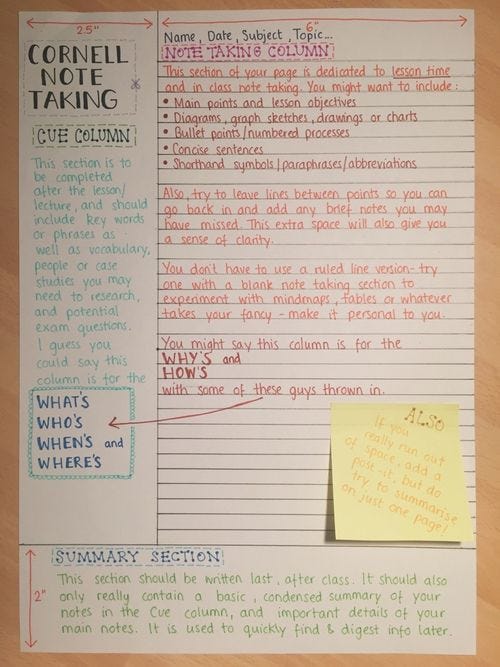 2.5"
6"
CORNELL
NOTE
TAKING
CUE COLUMN
This section is to
be completed
after the lesson/
lecture, and should
include key words
or phrases as
well as vocabulary,
people or case
studies you may
need to research,
and potential
exam questions.
I guess you
could say this
column is for the
WHAT'S
WHO'S
WHEN'S and
WHERE'S
Name, Date, Subject, Topic...
NOTE TAKING COLUMN
This section of your page is dedicated to lesson time
and in class note taking. You might want to include:
• Main points and lesson objectives
• Diagrams, graph sketches, drawings or charts
• Bullet points/numbered processes
• Concise sentences
• Shorthand symbols/paraphrases/abbreviations
Also, try to leave lines between points so you can
go back in and add any brief notes you may
have missed. This extra space will also give you
a sense of clarity.
You don't have to use a ruled line version - try
one with a blank note taking section to
experiment with mindmaps, tables or whatever
takes your fancy - make it personal to you.
You might say this column is for the
WHY'S and
HOW'S
with some of these guys thrown in.
ALSO
If you
really run out
of space, add a
post-it, but do
try to summarise
on just one page!
2"
SUMMARY SECTION
This section should be written last, after class. It should also
only really contain a basic, condensed summary of your
notes in the Cue column, and important details of your
main notes. It is used to quickly find & digest info later.